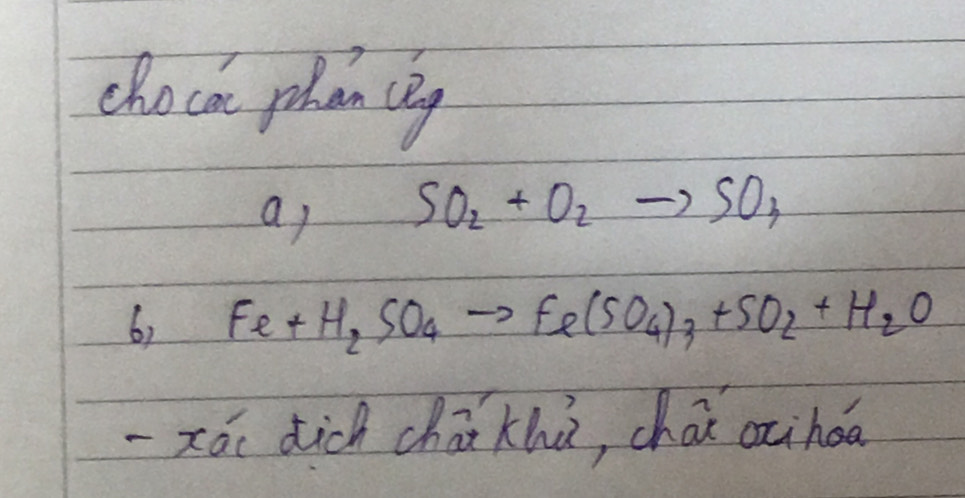 cho các phản ứng
a, SO₂ + O₂ → SO₃
b, Fe + H₂SO₄ → Fe(SO₄)₃ + SO₂ + H₂O
- xác định chất khử, chất oxi hóa